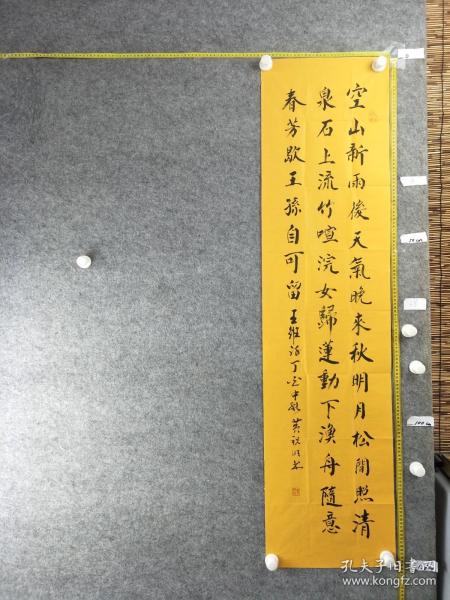 空山新雨後天氣晚來秋明月松間照清
泉石上流竹喧浣女歸蓮動下漁舟隨意
春芳歇王孫自可留王維詩丁亥中秋黃
孔夫子旧书网
www.kongfz.com